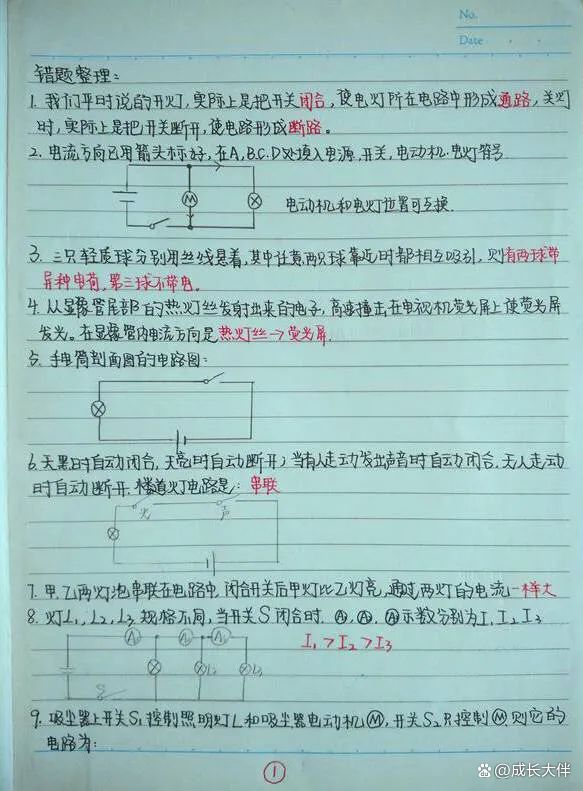 No.
Date
错题整理：
1. 我们平时说的开灯，实际上是把开关闭合，使电灯所在电路中形成通路，关灯
时，实际上是把开关断开，使电路形成断路。
2. 电流方向已用箭头标好，在A,B,C.D处填入电源.开关，电动机.电灯符号
M
电动机和电灯位置可互换.
3. 三只轻质球分别用丝线悬着，其中任意两只球靠近时都相互吸引，则有两球带
异种电荷，第三球不带电。
4. 从显像管尾部的热灯丝发射出来的电子，高速撞击在电视机荧光屏上使荧光屏
发光。在显像管内电流方向是热灯丝→荧光屏.
5. 手电筒剖面图的电路图：
6. 天黑时自动闭合，天亮时自动断开；当有人走动发出声音时自动闭合，无人走动
时自动断开.楼道灯电路是：串联
光 声
7. 甲.乙两灯泡串联在电路中，闭合开关后甲灯比乙灯亮，通过两灯的电流一样大
8. 灯L₁，L₂，L₃规格不同，当开关S闭合时.示数分别为I₁I₂I₃
I₁>I₂>I₃
L₂ L₃
S
9. 吸尘器上开关S₁控制照明灯L和吸尘器电动机Ⓜ，开关S₂只控制Ⓜ.则它的
电路为：
①
@成长大伴